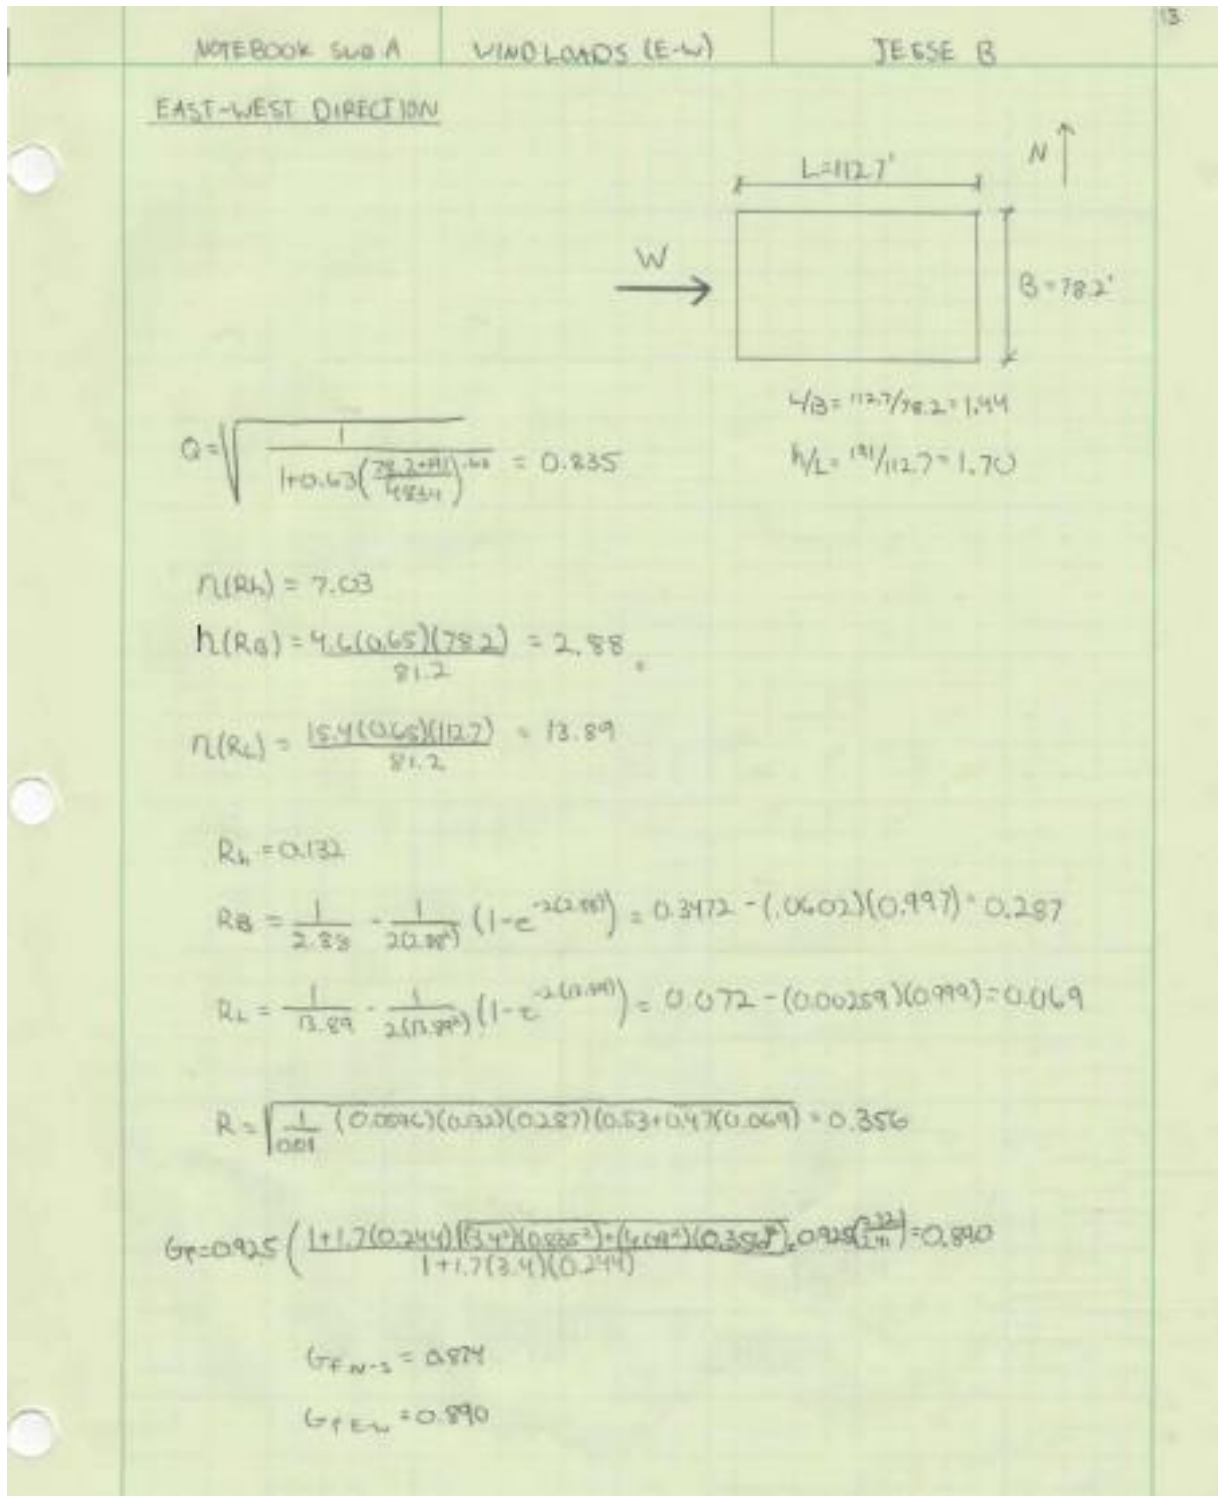 13
NOTEBOOK SUB A WIND LOADS (E-W) JESSE B
EAST-WEST DIRECTION
N
L=112.7'
W
B=78.2'
L/B= 112.7/78.2=1.44
h/L= 191/112.7=1.70
Q=√ 1/(1+0.63((78.2+191)/483.4)^.63) = 0.835
η(Rh) = 7.03
η(RB) = 4.6(0.65)(78.2)/81.2 = 2.88
η(RL) = 15.4(0.65)(112.7)/81.2 = 13.89
Rh =0.132
RB = 1/2.88 - 1/2(2.88²) (1-e^-2(2.88)) = 0.3472 -(.0602)(0.997)=0.287
RL = 1/13.89 - 1/2(13.89²) (1-e^-2(13.89)) = 0.072-(0.00259)(0.999)=0.069
R=√ 1/0.01 (0.0596)(0.132)(0.287)(0.53+0.47(0.069) =0.356
=0.925 ( 1+1.7(0.244) √(3.4²)(0.835²)+ / 1+1.7(3.4)(0.244) =0.890
GF N-S = 0.874
GF E-W =0.890